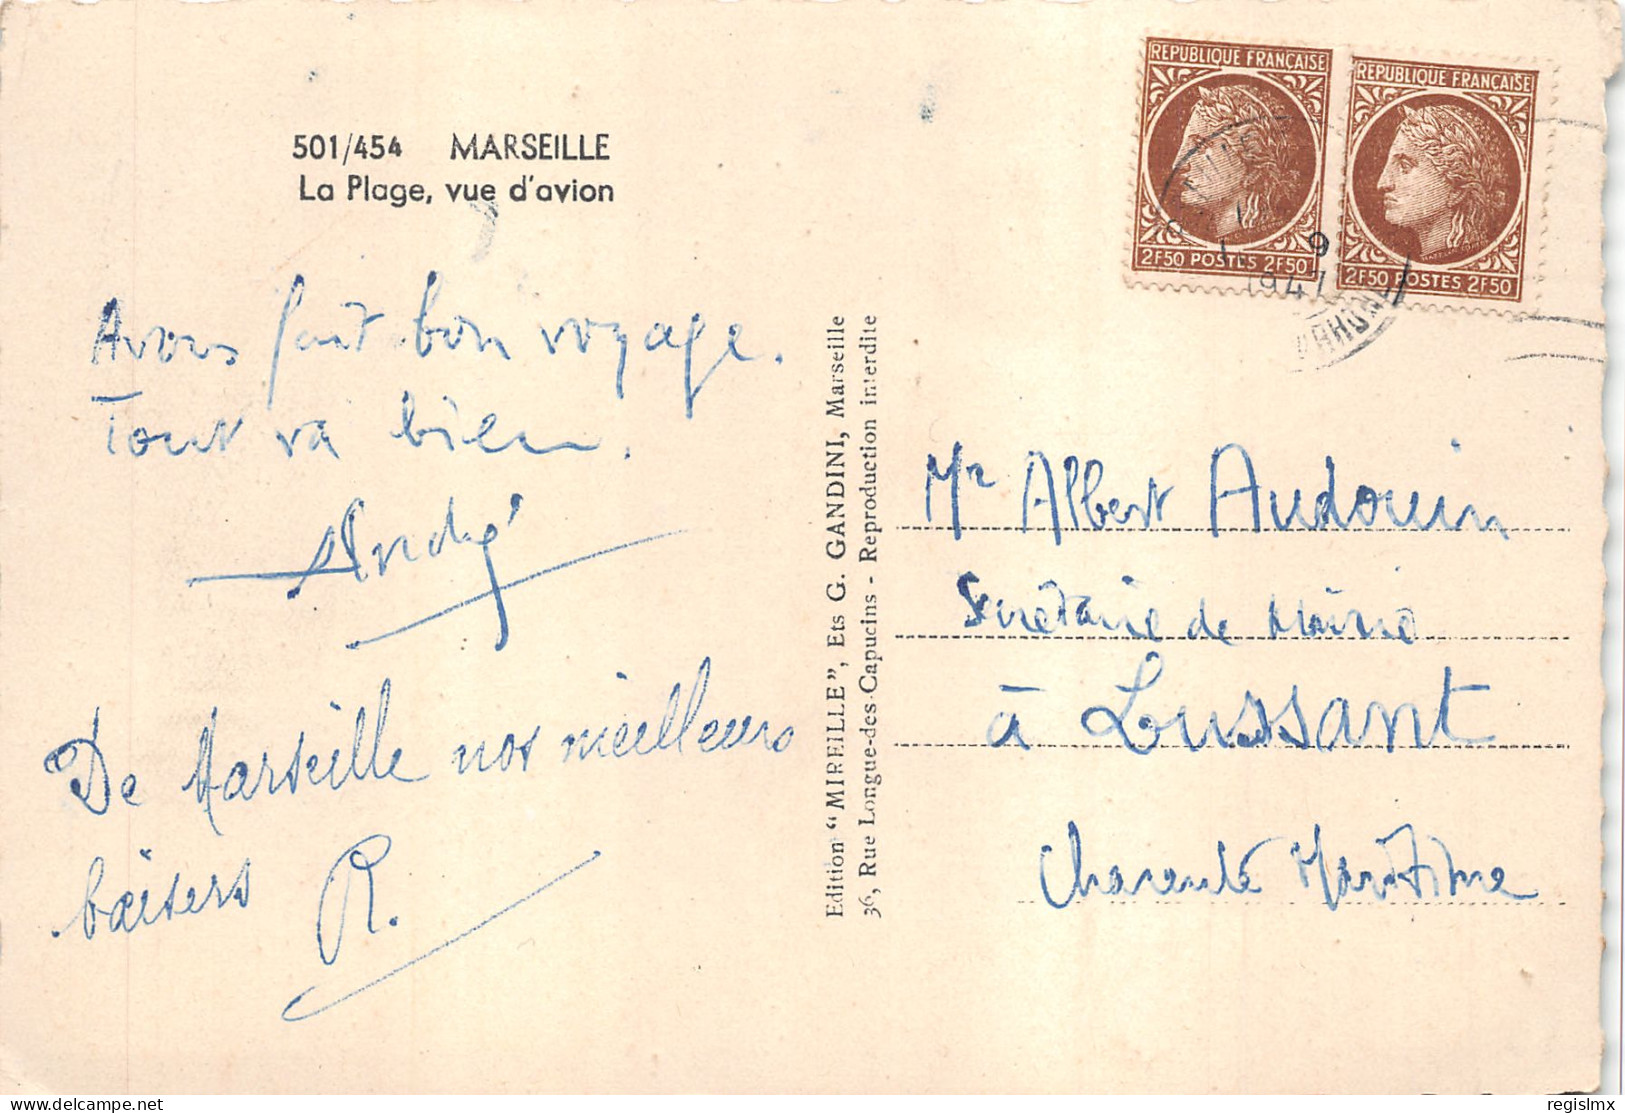 501/454 MARSEILLE
La Plage, vue d'avion
Avons fait bon voyage.
Tout va bien.
André
De Marseille nos meilleurs
baisers R.
Edition "MIREILLE", Ets G. GANDINI, Marseille
36, Rue Longue-des-Capucins - Reproduction interdite
REPUBLIQUE FRANÇAISE
2F50 POSTES 2F50
REPUBLIQUE FRANÇAISE
2F50 POSTES 2F50
9
1947
Mr Albert Audouin
Secrétaire de Mairie
à Lussant
Charente Maritime
delcampe.net
regislmx